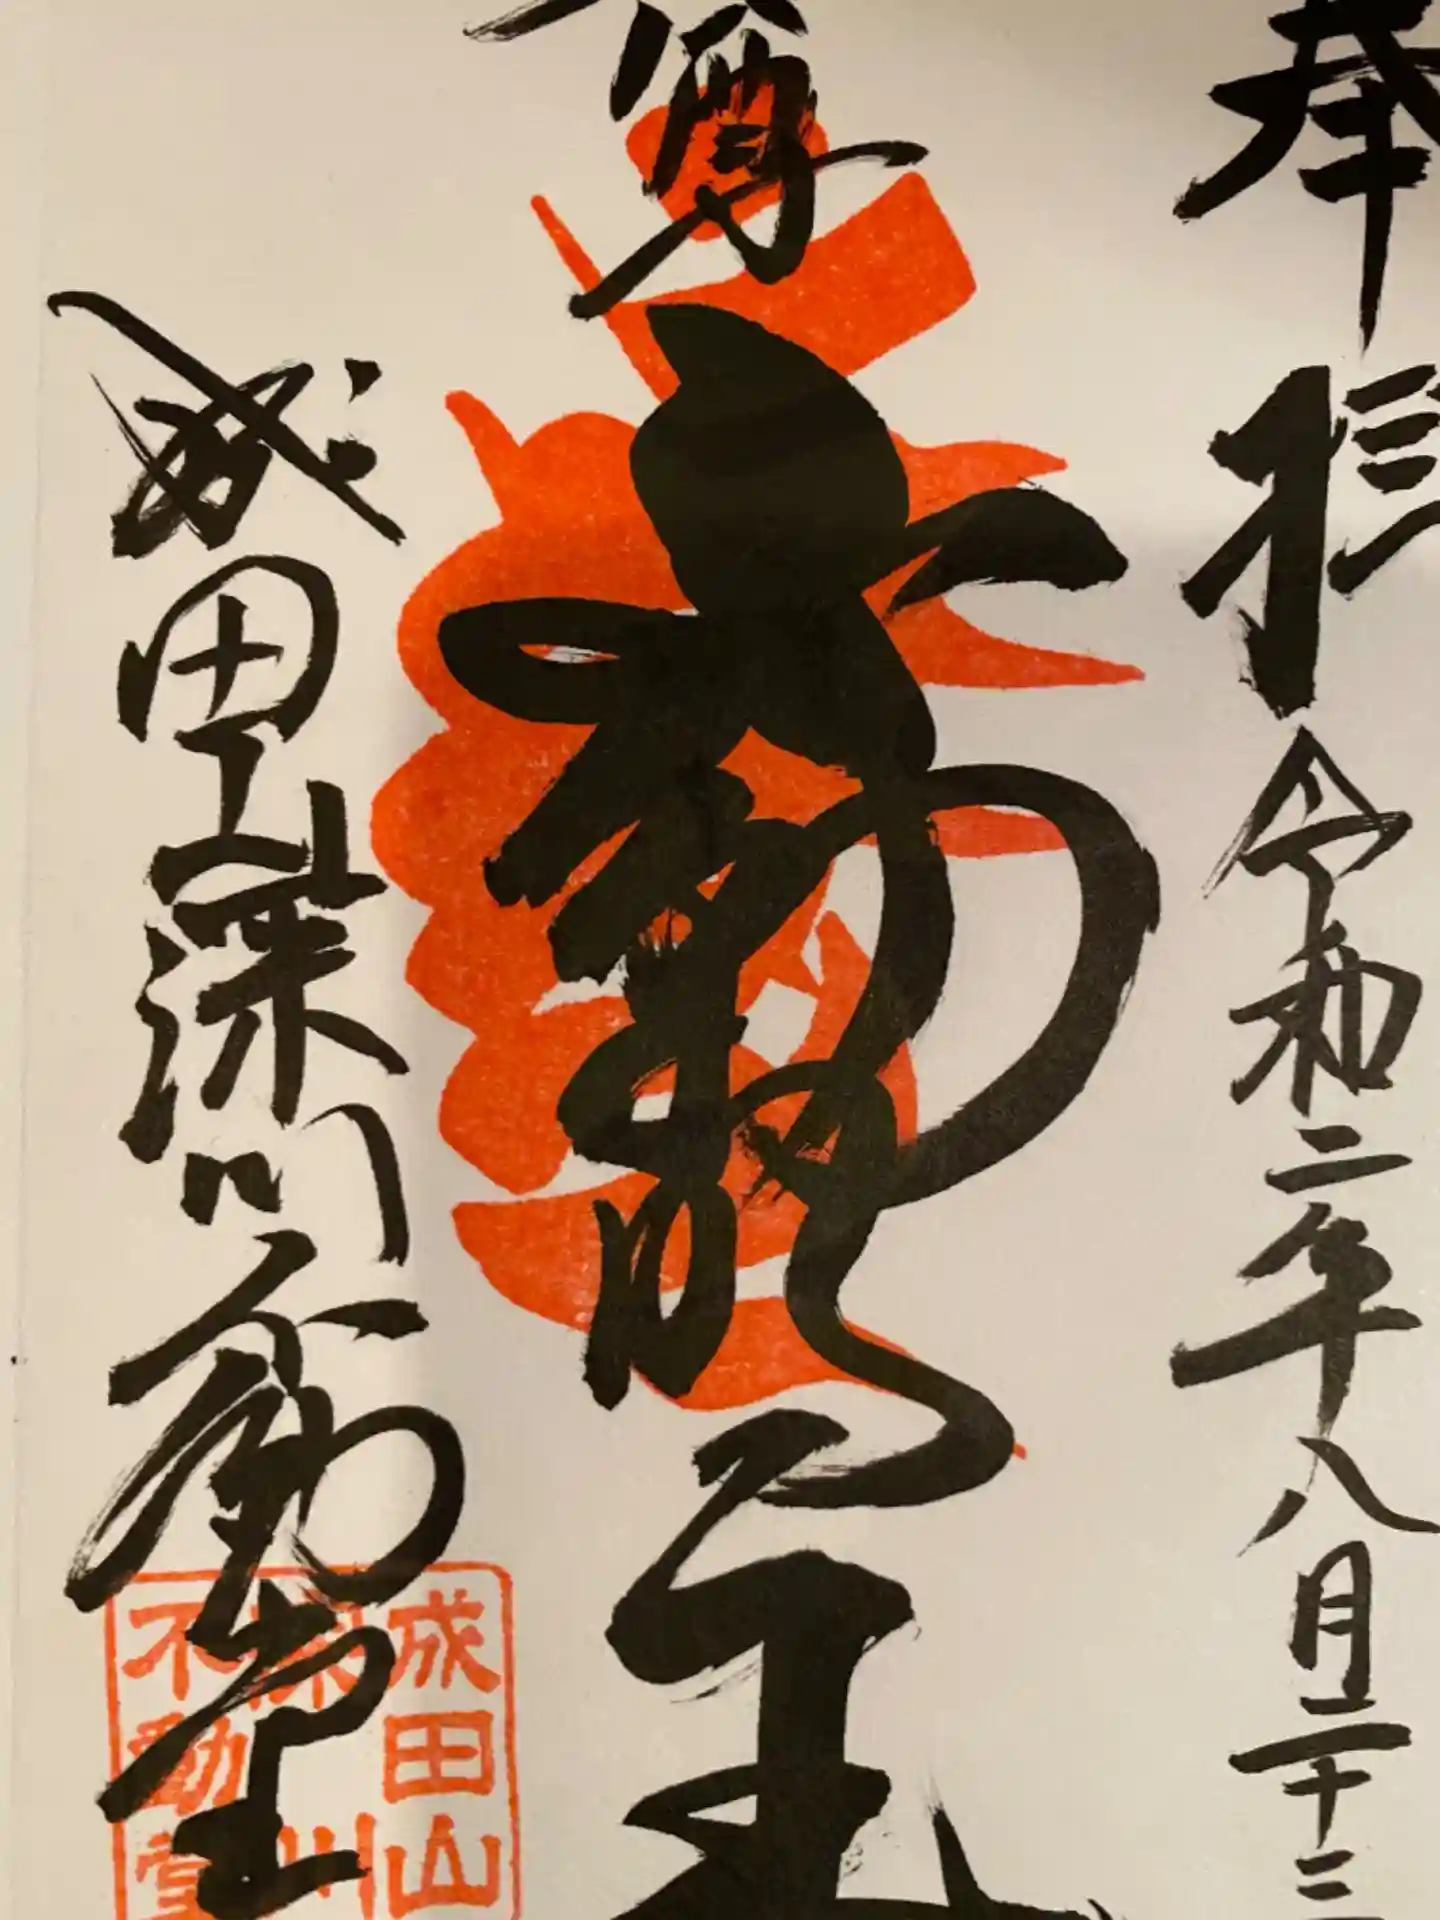 奉拝令和二年八月二十二
尊不動明王
成田山深川不動堂
成田山
深川
不動堂